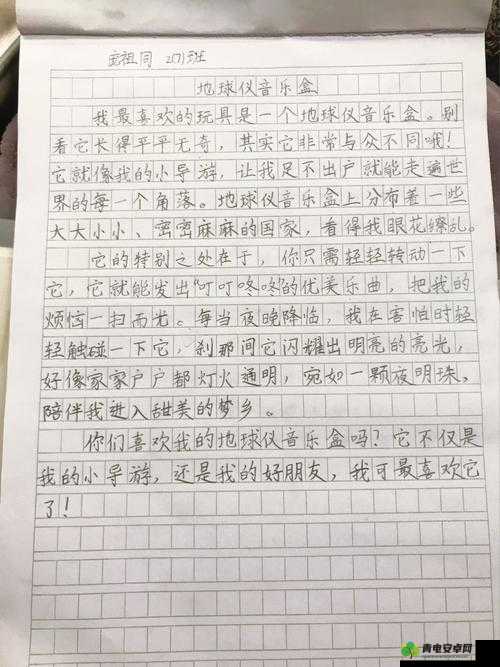 祖同 2(7)班
地球仪音乐盒
我最喜欢的玩具是一个地球仪音乐盒。别
看它长得平平无奇，其实它非常与众不同哦！
它就像我的小导游，让我足不出户就能走遍世
界的每一个角落。地球仪音乐盒上分布着一些
大大小小、密密麻麻的国家，看得我眼花缭乱。
它的特别之处在于，你只需轻轻转动一下
它，它就能发出“叮叮咚咚”的优美乐曲，把我的
烦恼一扫而光。每当夜晚降临，我在害怕时轻
轻触碰一下它，刹那间它闪耀出明亮的亮光，
好像家家户户都灯火通明，宛如一颗夜明珠，
陪伴我进入甜美的梦乡。
你们喜欢我的地球仪音乐盒吗？它不仅是
我的小导游，还是我的好朋友，我可最喜欢它
了！
青电安卓网